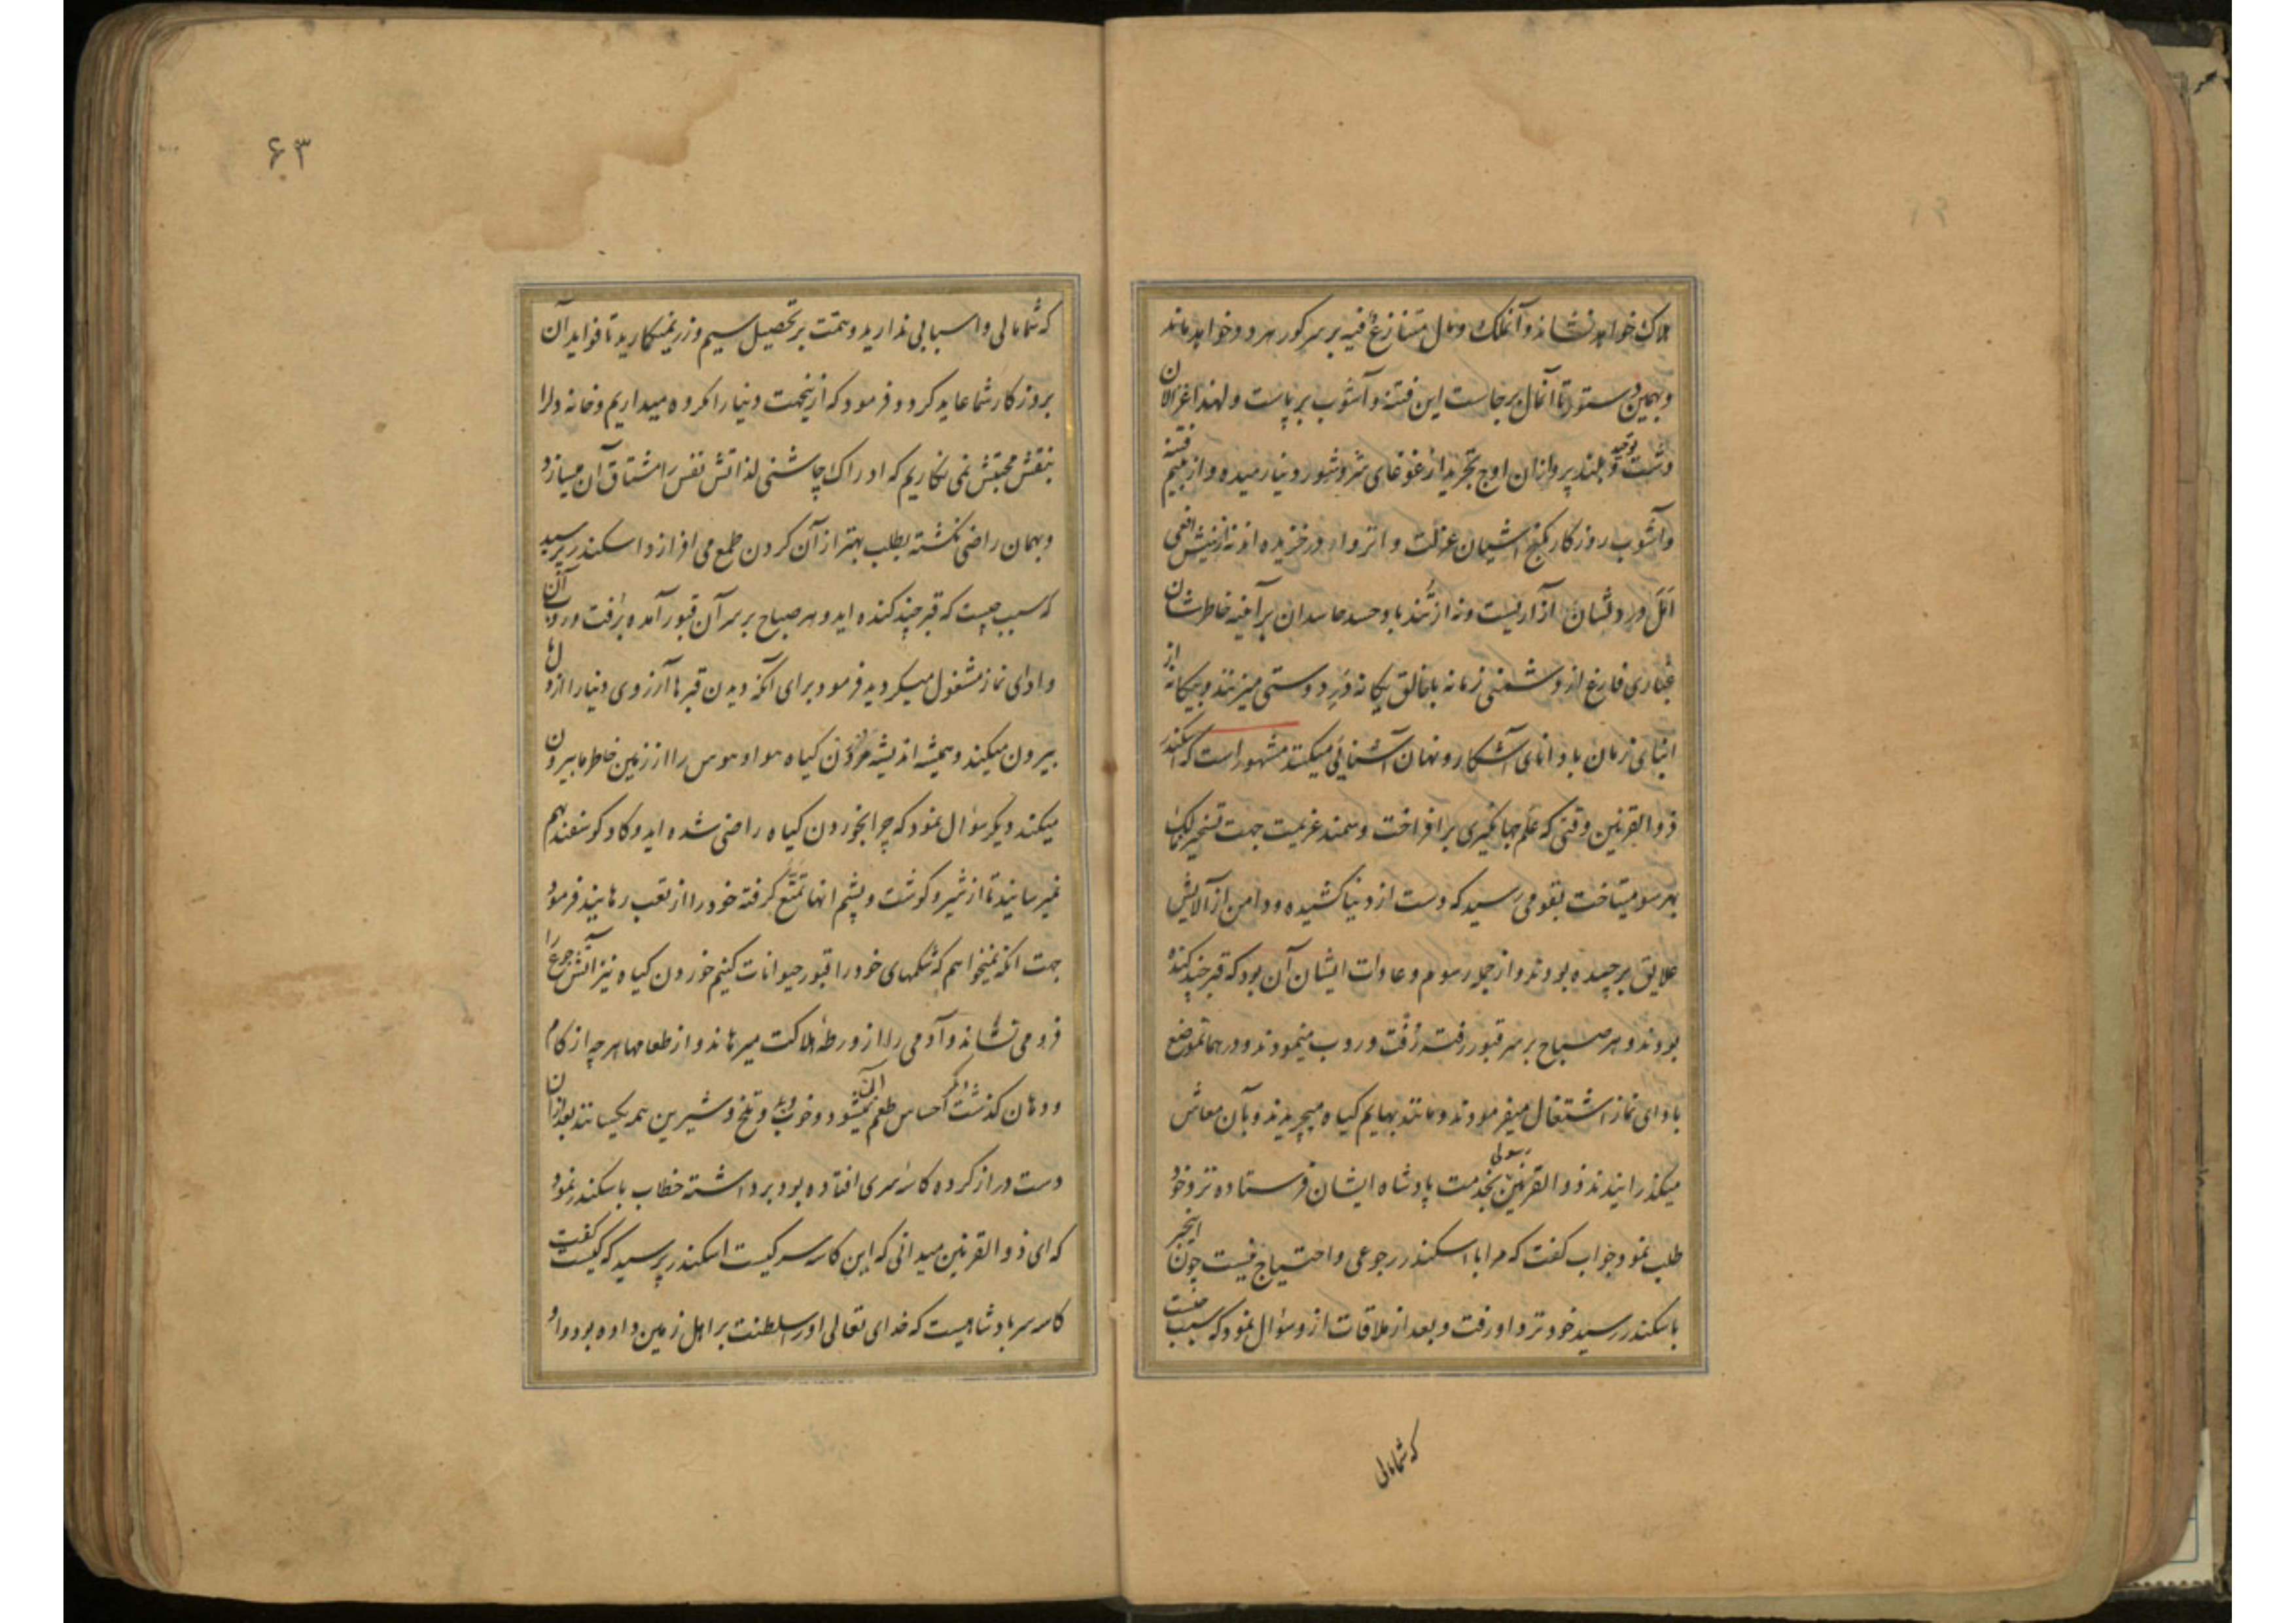 هلاک خواهد نشاند و آنملک و مال متنازع فیه بر سر کور هر دو خواهد ماند
و بهمین دستور تا آنمال برجاست این فتنه و آشوب برپاست و لهذا غزالان
دشت توحید و بلند پروازان اوج تجرید از غوغای شر و شور دنیا رمیده و از بیم فتنه
و آشوب روزکار بکنج آشیان عزلت و انزوا در خزیده اند نه از نیش افعی
امل در دلشان آزاریست و نه از تند باد حسد حاسدان بر آینه خاطرشان
غباری فارغ از دشمنی زمانه با خالق یکانه نرد دوستی میزنند و بیکانه از
ابنای زمان با دانای آشکار و نهان آشنایی میکنند مشهور است که اسکندر
ذوالقرنین وقتی که علم جهانکیری برافراخت و سمند عزیمت جهت تسخیر ممالک
بهر سو میتاخت بقومی رسید که دست از دنیا کشیده و دامن از آلایش
علایق برچیده بودند و از جمله رسوم و عادات ایشان آن بود که قبر چند کنده
بودند و هر صباح بر سر قبور رفته رفت و روب مینمودند و در همانموضع
بادای نماز اشتغال میفرمودند و مانند بهایم کیاه میچریدند و بآن معاش
میکذرانیدند ذوالقرنین رسولی بخدمت پادشاه ایشان فرستاده نزد خود
طلب نمود جواب کفت که مرا با اسکندر رجوعی و احتیاج نیست چون اینخبر
باسکندر رسید خود نزد او رفت و بعد از ملاقات از و سؤال نمود که سبب چیست
که شما مالی
۶۳
که شما مالی و اسبابی ندارید و همت بر تحصیل سیم و زر نمیکمارید تا فواید آن
بروزکار شما عاید کردد فرمود که ازینجهت دنیا را مکروه میداریم و خانه دلرا
بنقش محبتش نمی نکاریم که ادراک چاشنی لذاتش نفس را مشتاق آن میسازد
و بهمان راضی نکشته بطلب بهتر از آن کردن طمع می افرازد اسکندر پرسید
که سبب چیست که قبر چند کنده اید و هر صباح بر سر آن قبور آمده برفت و روب آن
و ادای نماز مشغول میکردید فرمود برای آنکه دیدن قبرها آرزوی دنیا را از دلها
بیرون میکند و همیشه اندیشه مردن کیاه هوا و هوس را از زمین خاطر ما بیرون
میکند دیکر سؤال نمود که چرا بخوردن کیاه راضی شده اید و کاو و کوسفند بهم
نمیرسانید تا از شیر و کوشت و پشم انها تمتع کرفته خود را از تعب رهانید فرمود
جهت انکه نمیخواهم که شکمهای خود را قبور حیوانات کنیم خوردن کیاه نیز آتش جوع را
فرو می نشاند و آدمی را از ورطه هلاکت میرهاند و از طعامها هر چه از کام
و دهان کذشت دیکر احساس طعم آن نمیشود و خوب و بد و تلخ و شیرین همه یکسانند بعد از ان
دست دراز کرده کاسه سری افتاده بود برداشته خطاب باسکندر نمود
که ای ذوالقرنین میدانی که این کاسه سر کیست اسکندر پرسید که کیست کفت
کاسه سر پادشاهیست که خدای تعالی او را سلطنت بر اهل زمین داده بود و او